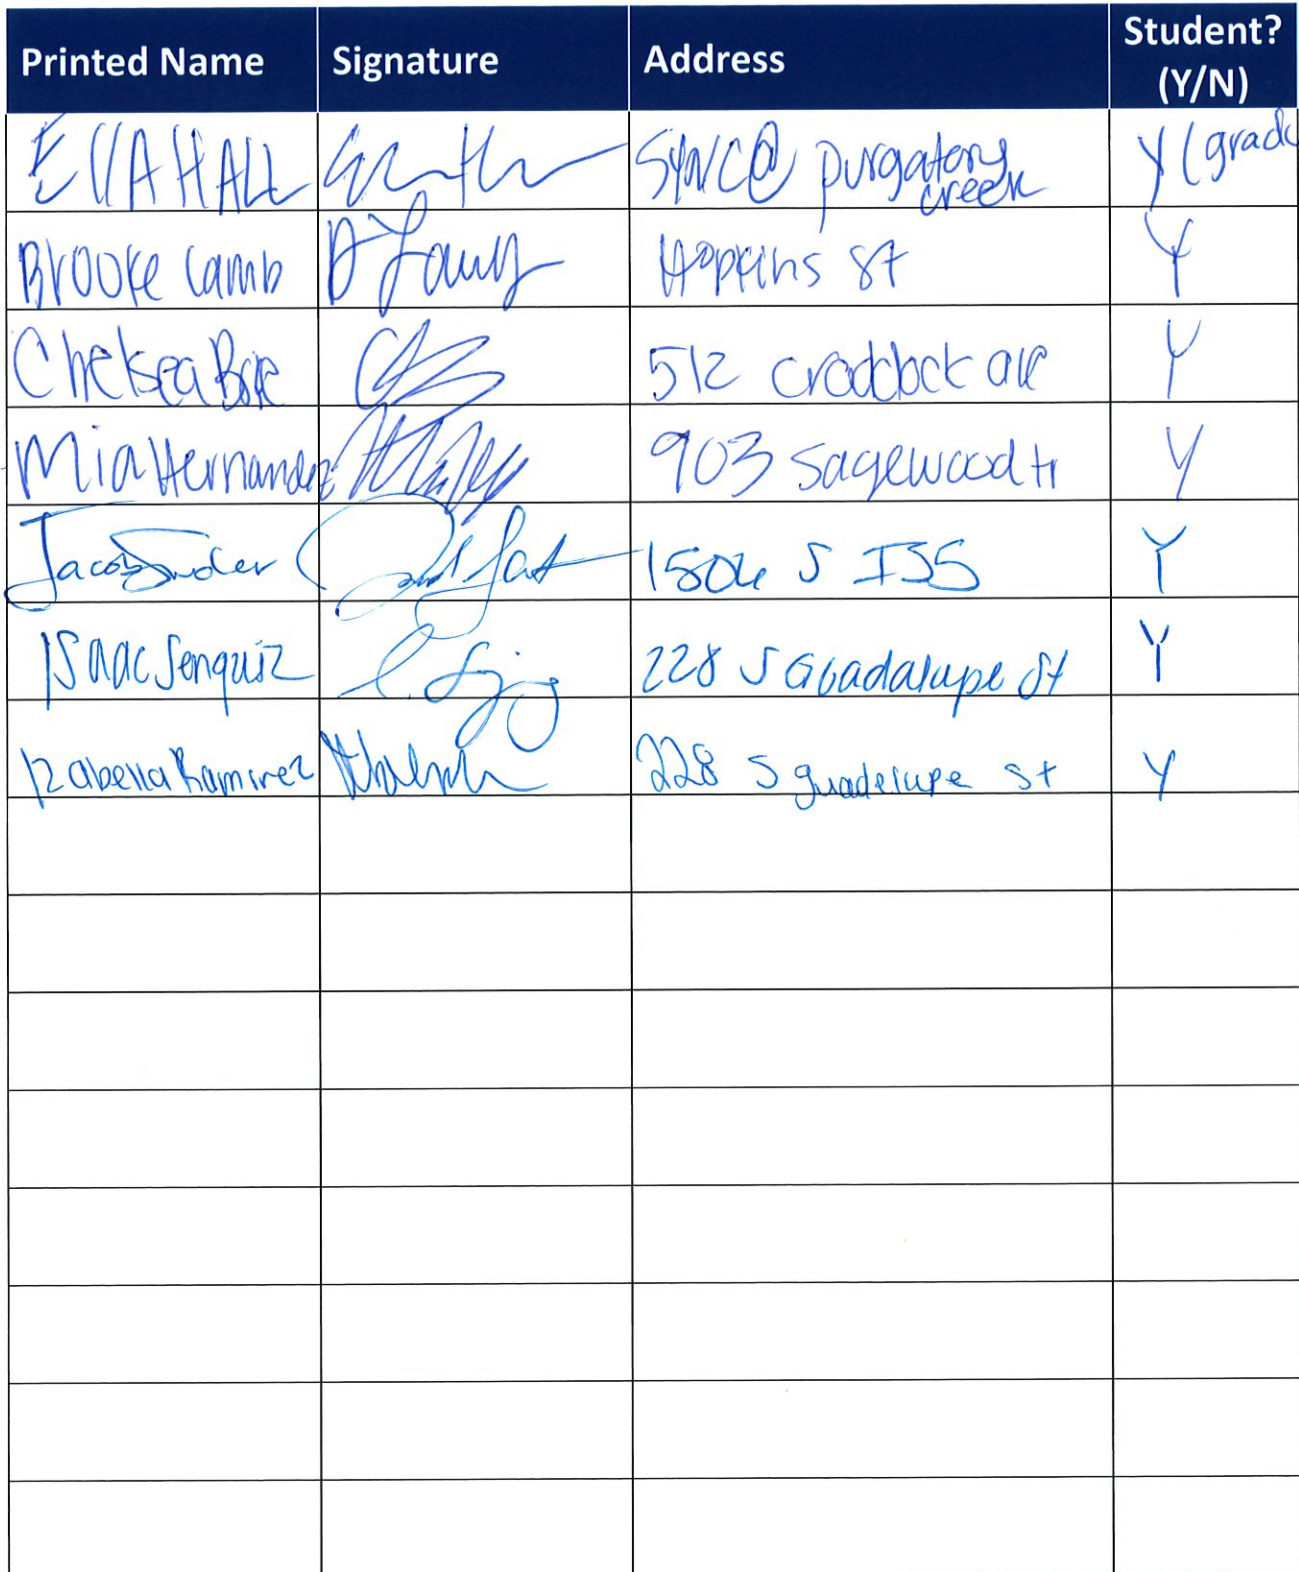 Printed Name Signature Address Student? (Y/N)
Ella HALL SYNC@ purgatory creek Y (grad
Brooke Lamb Hopkins St Y
Chelsea 512 craddock ave Y
Mia Hernandez 903 Sagewood tr Y
Jacob S I35 Y
ISaac Senquiz 228 S Guadalupe St Y
Izabella Ramirez 228 S guadelupe st Y